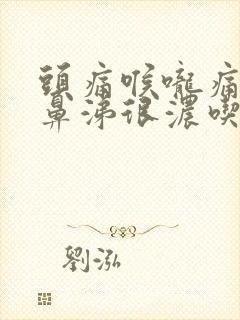 頭痛喉嚨痛
鼻涕很濃喫
劉泓